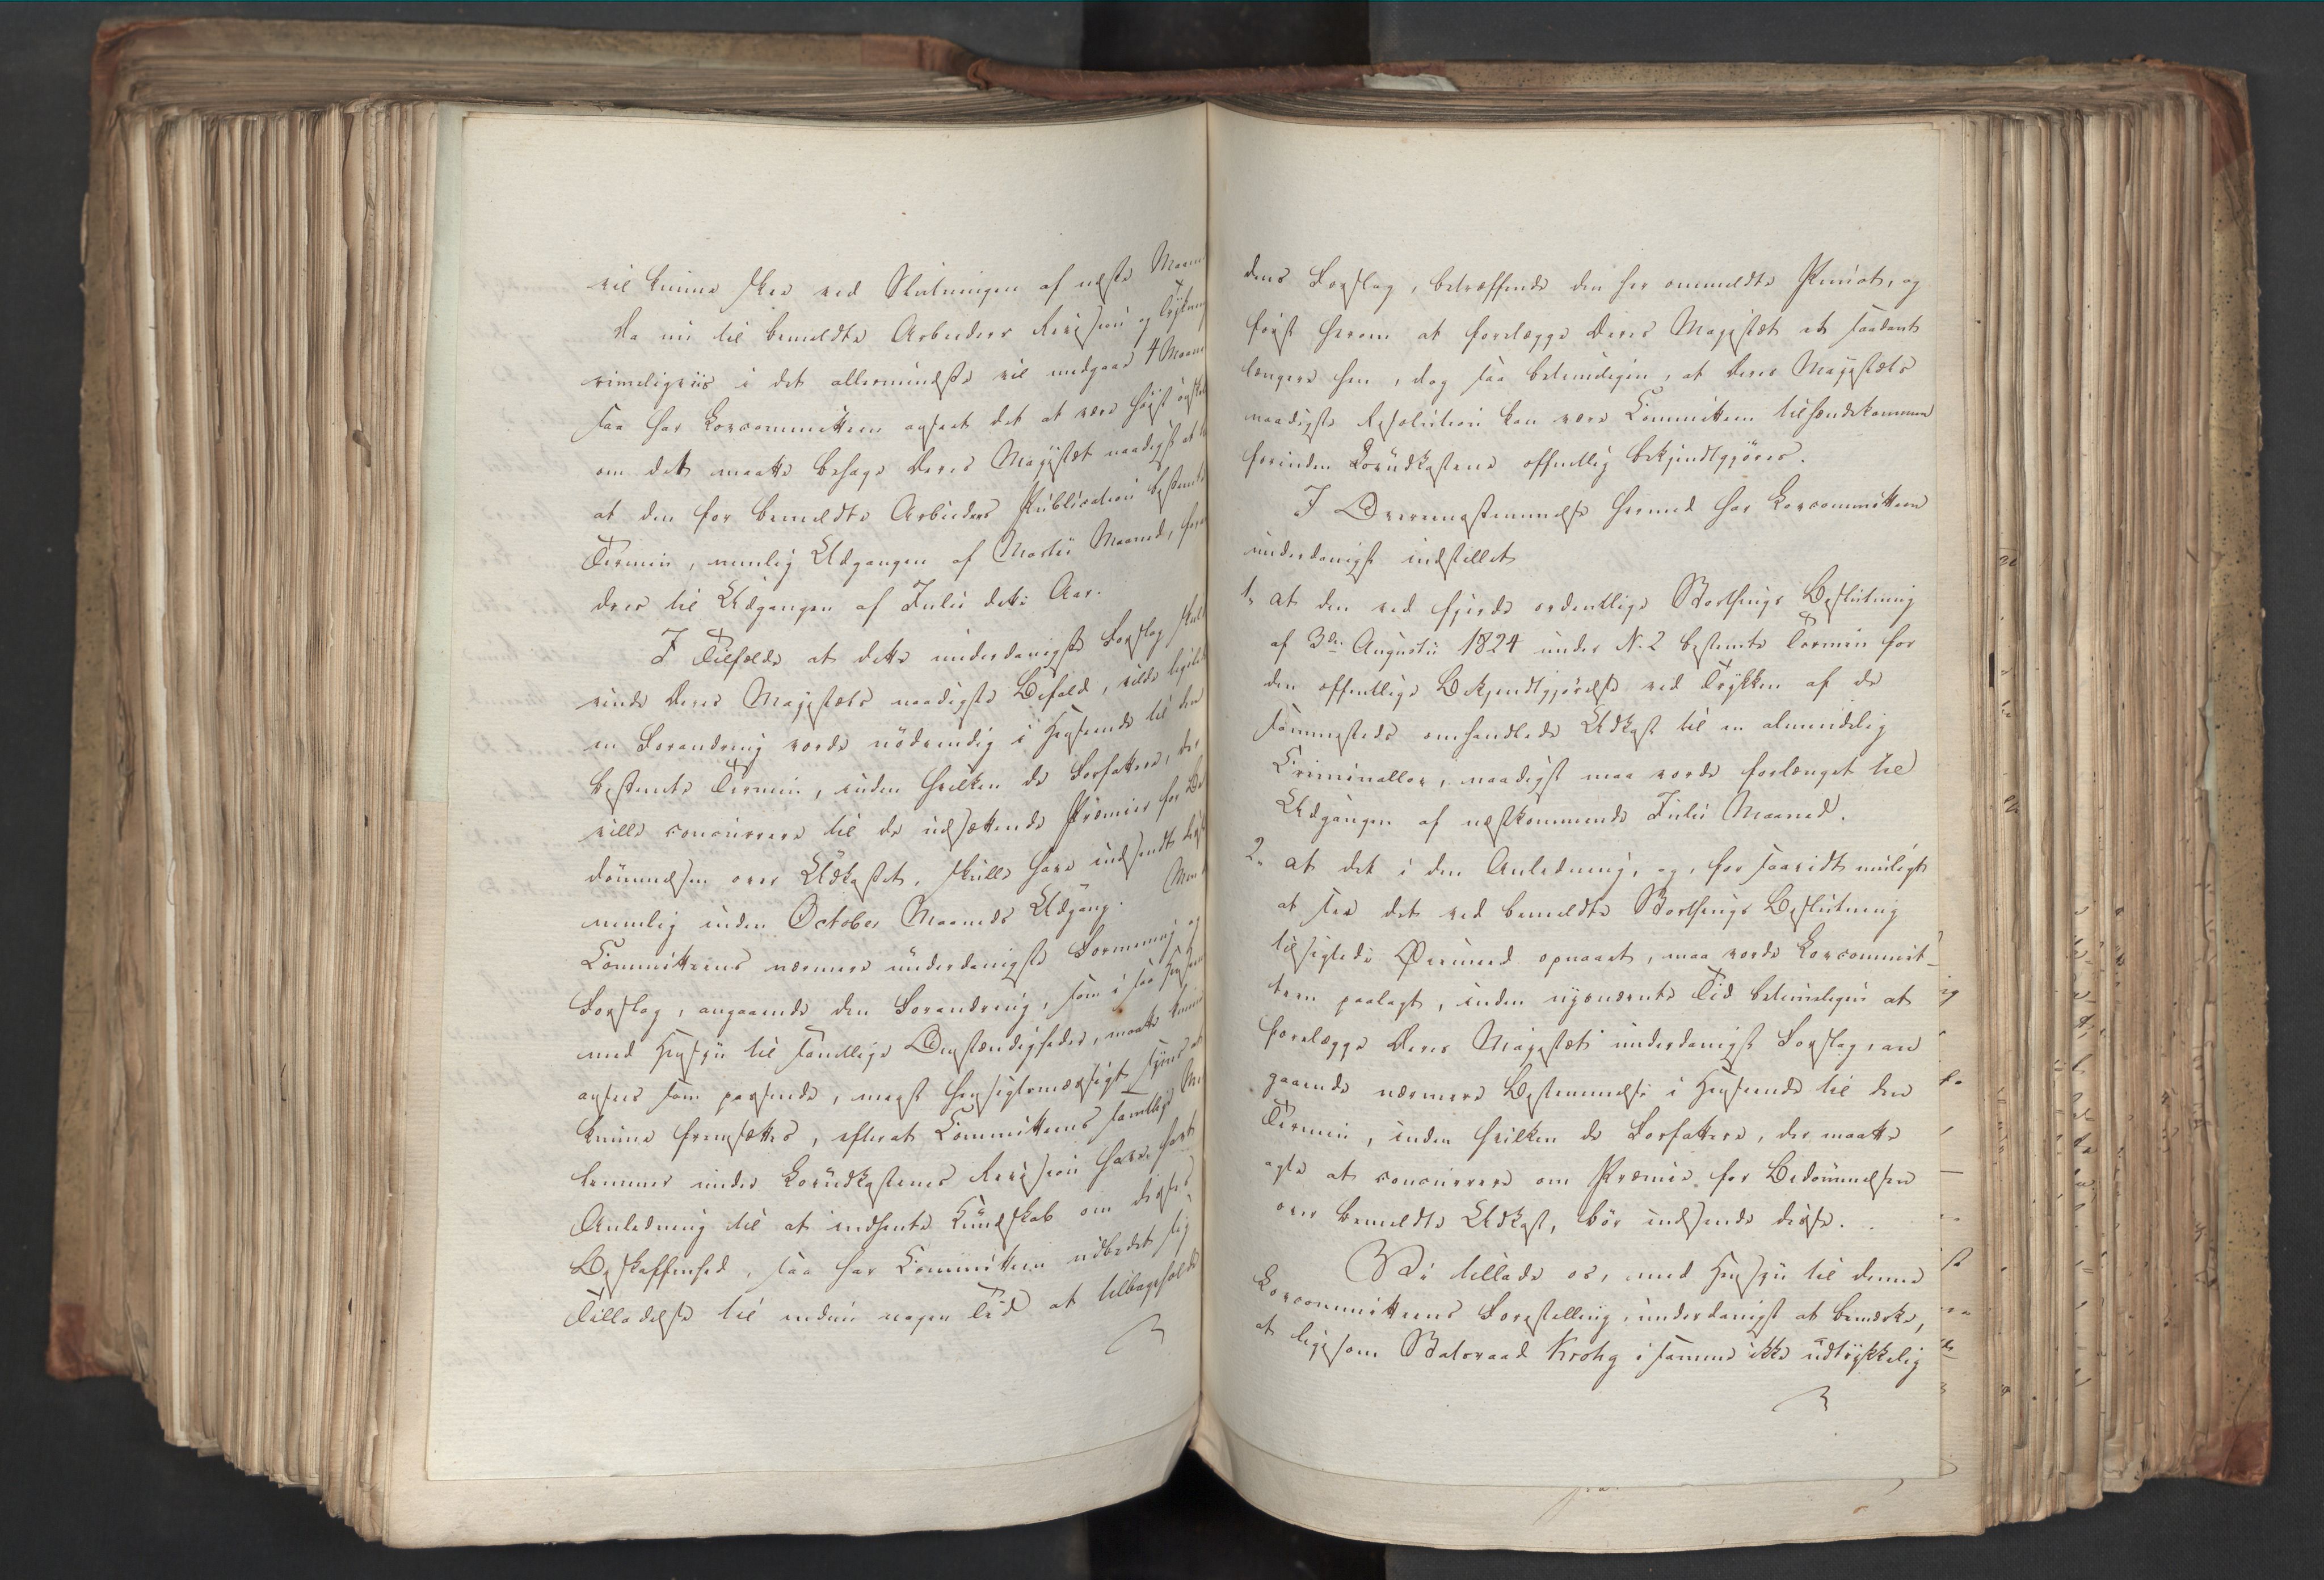 vil kunne skee ved Slutningen af næste Maan
Da nu til bemeldte Arbeiders Revision og Trykning
rimeligviis i det allermindste vil medgaae 4 Maan
saa har Lovcommitteen anseet det at være høist ønske
om det maatte behage Deres Majestæt naadigst at
at den for bemeldte Arbeiders Publication bestemte
Termin, nemlig Udgangen af Martii Maaned,
dres til Udgangen af Julii dette Aar.
I Tilfælde at dette underdanigste Forslag skul
vinde Deres Majestæts naadigste Bifald, vilde ligele
en Forandring vorde nödvendig i Henseende til den
bestemte Termin, inden hvilken de Forfattere, der
ville concurrere til de udsættende Præmier for Be
dømmelsen over Udkastet, skulle have indsendt disse
nemlig inden October Maaneds Udgang. Men
Committeens nærmere underdanigste Formening og
Forslag, angaaende den Forandring, som i saa Henseen
med Hensyn til samtlige Omstændigheder, maatte kunne
ansees som passende, meest hensigtsmæssigt synes at
kunne fremsættes, efterat Committeens samtlige Med
lemmer under Lovudkastenes Revision have havt
Anledning til at indhente Kundskab om disses
Beskaffenhed, saa har Committeen udbedet sig
Tilladelse til endnu nogen Tid at tilbageholde
dens Forslag, betræffende den her ommeldte Punct, og
først herom at forelægge Deres Majestæt et saadant
længere hen, dog saa betimeligen, at Deres Majestæts
naadigste Resolution kan være Committeen tilhændekommen
forinden Lovudkastene offentlig bekjendtgjøres.
I Overeensstemmelse hermed har Lovcommitteen
underdanigst indstillet
1, at den ved fjerde ordentlige Storthings Beslutning
af 3die Augusti 1824 under N. 2 bestemte Termin for
den offentlige Bekjendtgjørelse ved Trykken af de
sammesteds omhandlede Udkast til en almindelig
Criminallov, naadigst maa vorde forlænget til
Udgangen af næstkommende Julii Maaned.
2, at det i den Anledning, og, for saavidt muligt
at see det ved bemeldte Storthings Beslutning
tilsigtede Øiemeed opnaaet, maa vorde Lovcommit-
teen paalagt, inden nysnævnte Tid betimeligen at
forelægge Deres Majestæt underdanigst Forslag, an
gaaende nærmere Bestemmelse i Henseende til den
Termin, inden hvilken de Forfattere, der maatte
agte at concurrere om Præmie for Bedømmelsen
over bemeldte Udkast, bør indsende disse.
Vi tillade os, med Hensyn til denne
Lovcommitteens Forestilling, underdanigst at bemærke,
at ligesom Statsraad Krohg i samme ikke udtrykkelig